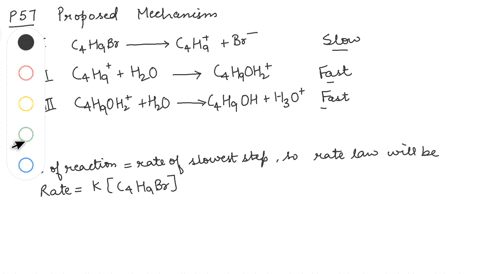 P57 Proposed Mechanism
C4H9Br ⟶ C4H9⁺ + Br⁻ Slow
I C4H9⁺ + H2O ⟶ C4H9OH2⁺ Fast
II C4H9OH2⁺ + H2O ⟶ C4H9OH + H3O⁺ Fast
. of reaction = rate of slowest step, so rate law will be
Rate = K [C4H9Br]